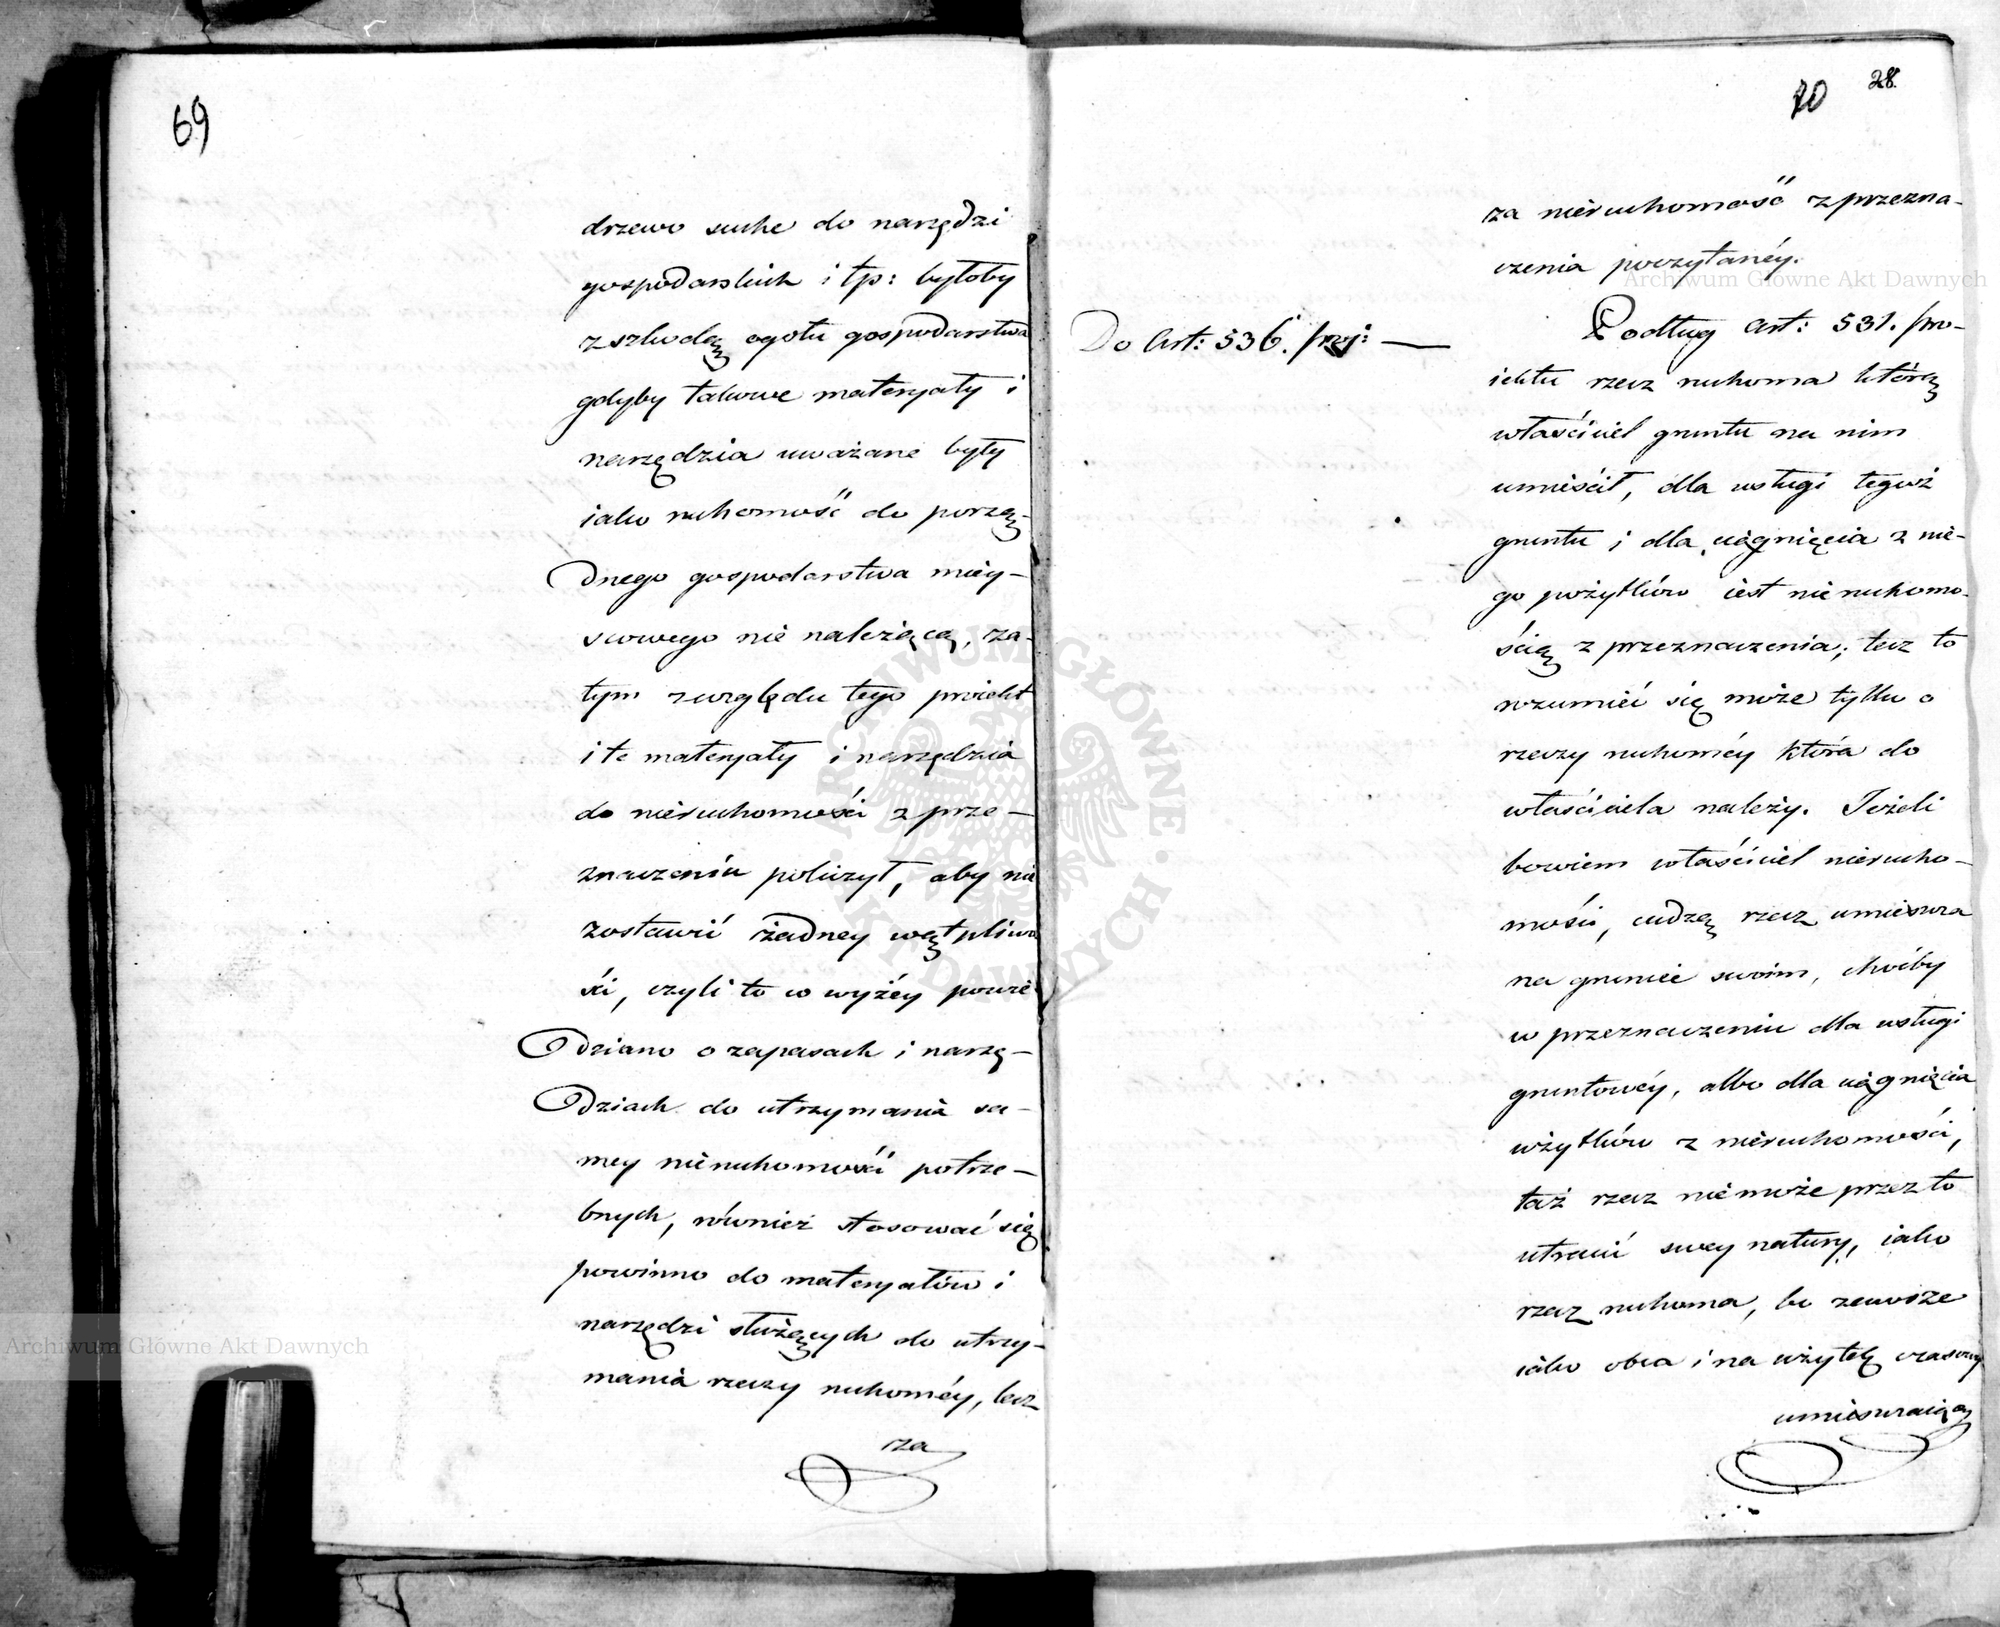 69
drzewo suche do narzędzi
gospodarskich i tp: byłoby
z szkodą ogółu gospodarstwa
gdyby takowe materyały i
narzędzia uważane były
iako ruchomość do porzą-
dnego gospodarstwa miey-
scowego nie należącą, za-
tym z względu tego proiekt
i te materyały i narzędzia
do nieruchomości z prze-
znaczenia policzył, aby nie
zostawić żadney wątpliwo
ści, czyli to co wyżéy powie
dziano o zapasach i narzę-
dziach do utrzymania sa-
mey nieruchomości potrze-
bnych, również stosować się
powinno do materyałów i
narzędzi służących do utrzy-
mania rzeczy ruchoméy, lecz
za
70 28.
za nieruchomość z przezna-
czenia poczytanéy.
Do Art: 536. proj: —
Podług art: 531. pro-
iektu rzecz ruchoma którą
właściciel gruntu na nim
umieścił, dla usługi tegoż
gruntu i dla ciągnięcia z nie-
go pożytków iest nieruchomo-
ścią z przeznaczenia; lecz to
rozumieć się może tylko o
rzeczy ruchoméy która do
właściciela należy. Jeżeli
bowiem właściciel nierucho-
mości, cudzą rzecz umieszcza
na gruncie swoim, choćby
w przeznaczeniu dla usługi
gruntowéy, albo dla ciągnięcia
użytków z nieruchomości,
taż rzecz nie może przez to
utracić swey natury, iako
rzecz ruchoma, bo zawsze
iako obca i na użytek czasowy
umieszczaiącą
Archiwum Główne Akt Dawnych
Archiwum Główne Akt Dawnych
ARCHIWUM GŁÓWNE AKT DAWNYCH